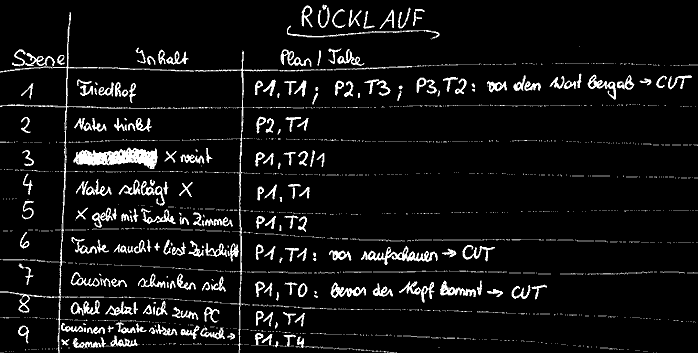 RÜCKLAUF
Szene Inhalt Plan / Take
1 Friedhof P1, T1 ; P2, T3 ; P3, T2 : vor dem Wort bergab → CUT
2 Vater trinkt P2, T1
3 X weint P1, T2/1
4 Vater schlägt X P1, T1
5 X geht mit Tasche in Zimmer P1, T2
6 Tante raucht + liest Zeitschrift P1, T1 : vor raufschauen → CUT
7 Cousinen schminken sich P1, T0 : bevor der Kopf kommt → CUT
8 Onkel setzt sich zum PC P1, T1
9 Cousinen + Tante sitzen auf Couch →
X kommt dazu P1, T4